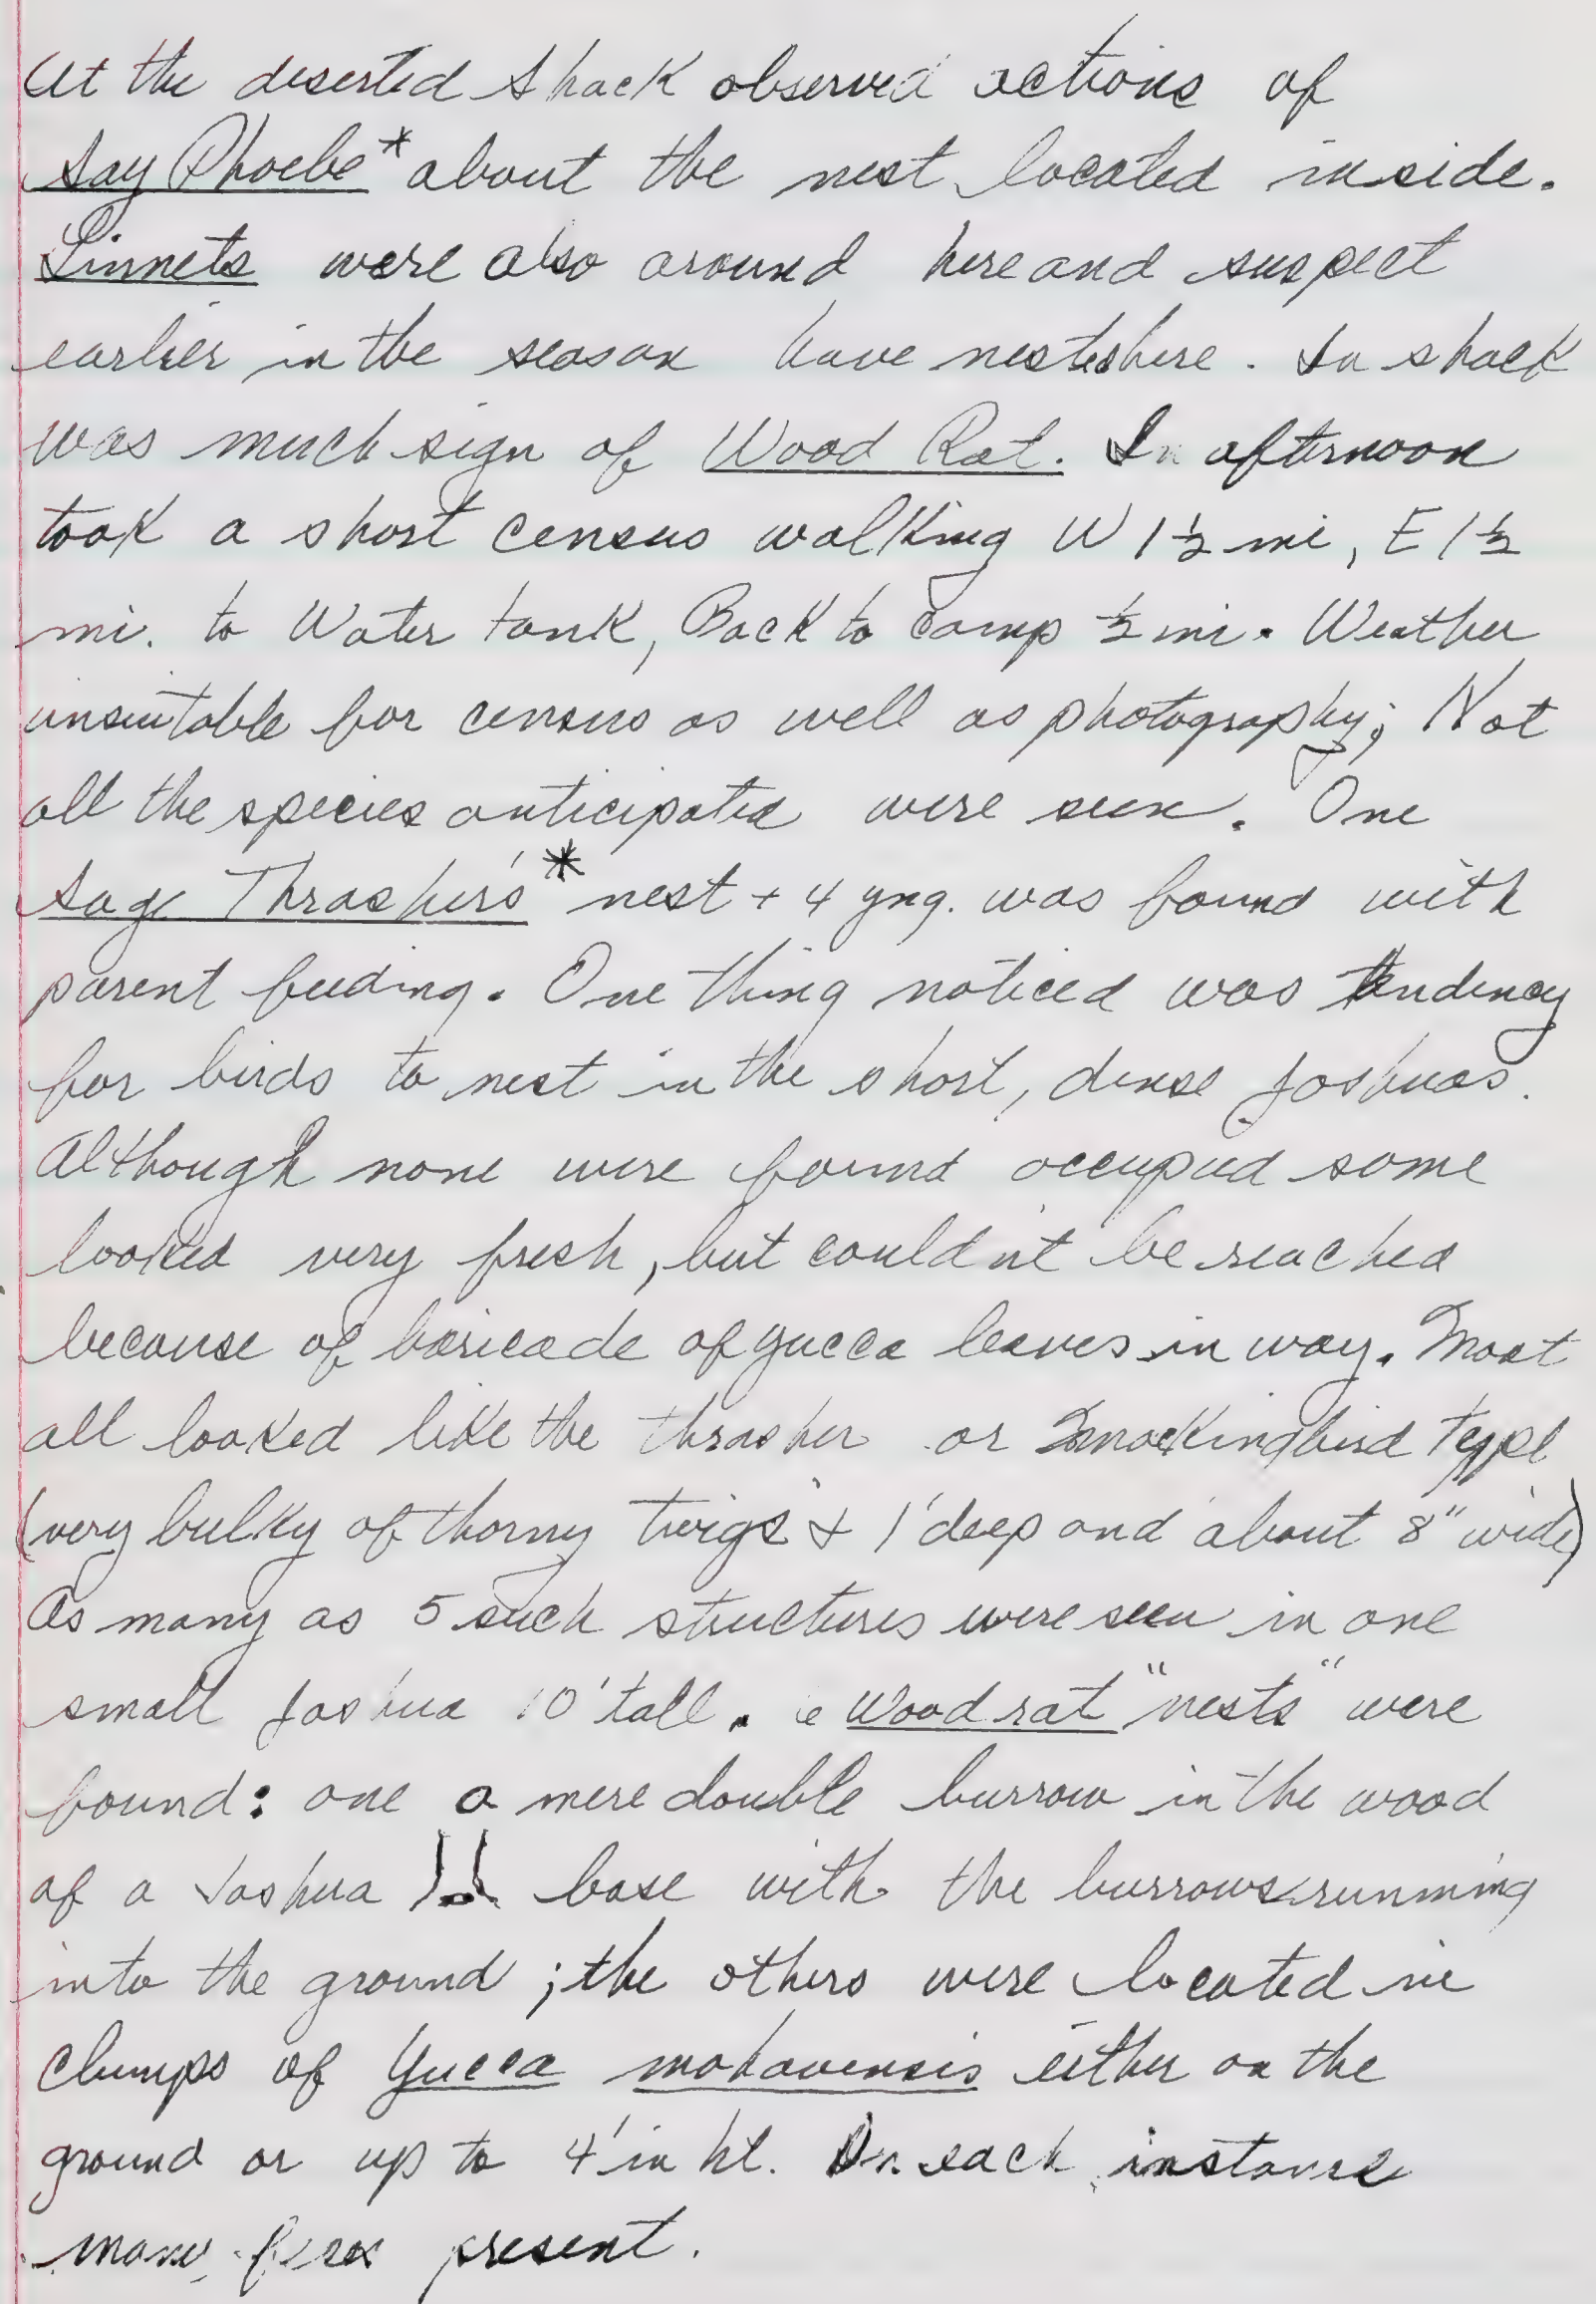 At the deserted shack observed actions of
Say Phoebe* about the nest located inside.
Linnets were also around here and suspect
earlier in the season have nested here. In shack
was much sign of Wood Rat. In afternoon
took a short census walking W 1½ mi, E 1½
mi. to Water tank, Back to camp ½ mi. Weather
unsuitable for census as well as photography; Not
all the species anticipated were seen. One
Sage Thrasher's* nest + 4 yng. was found with
parent feeding. One thing noticed was tendency
for birds to nest in the short, dense Joshuas.
Although none were found occupied some
looked very fresh, but couldn't be reached
because of baricade of yucca leaves in way. Most
all looked like the thrasher or Mockingbird type
(very bulky of thorny twigs & 1' deep and about 8" wide)
As many as 5 such structures were seen in one
small Joshua 10' tall. Wood rat "nests" were
found: one a mere double burrow in the wood
of a Joshua base with the burrows running
into the ground; the others were located in
clumps of Yucca mohavensis either on the
ground or up to 4' in ht. In each instance
many present.